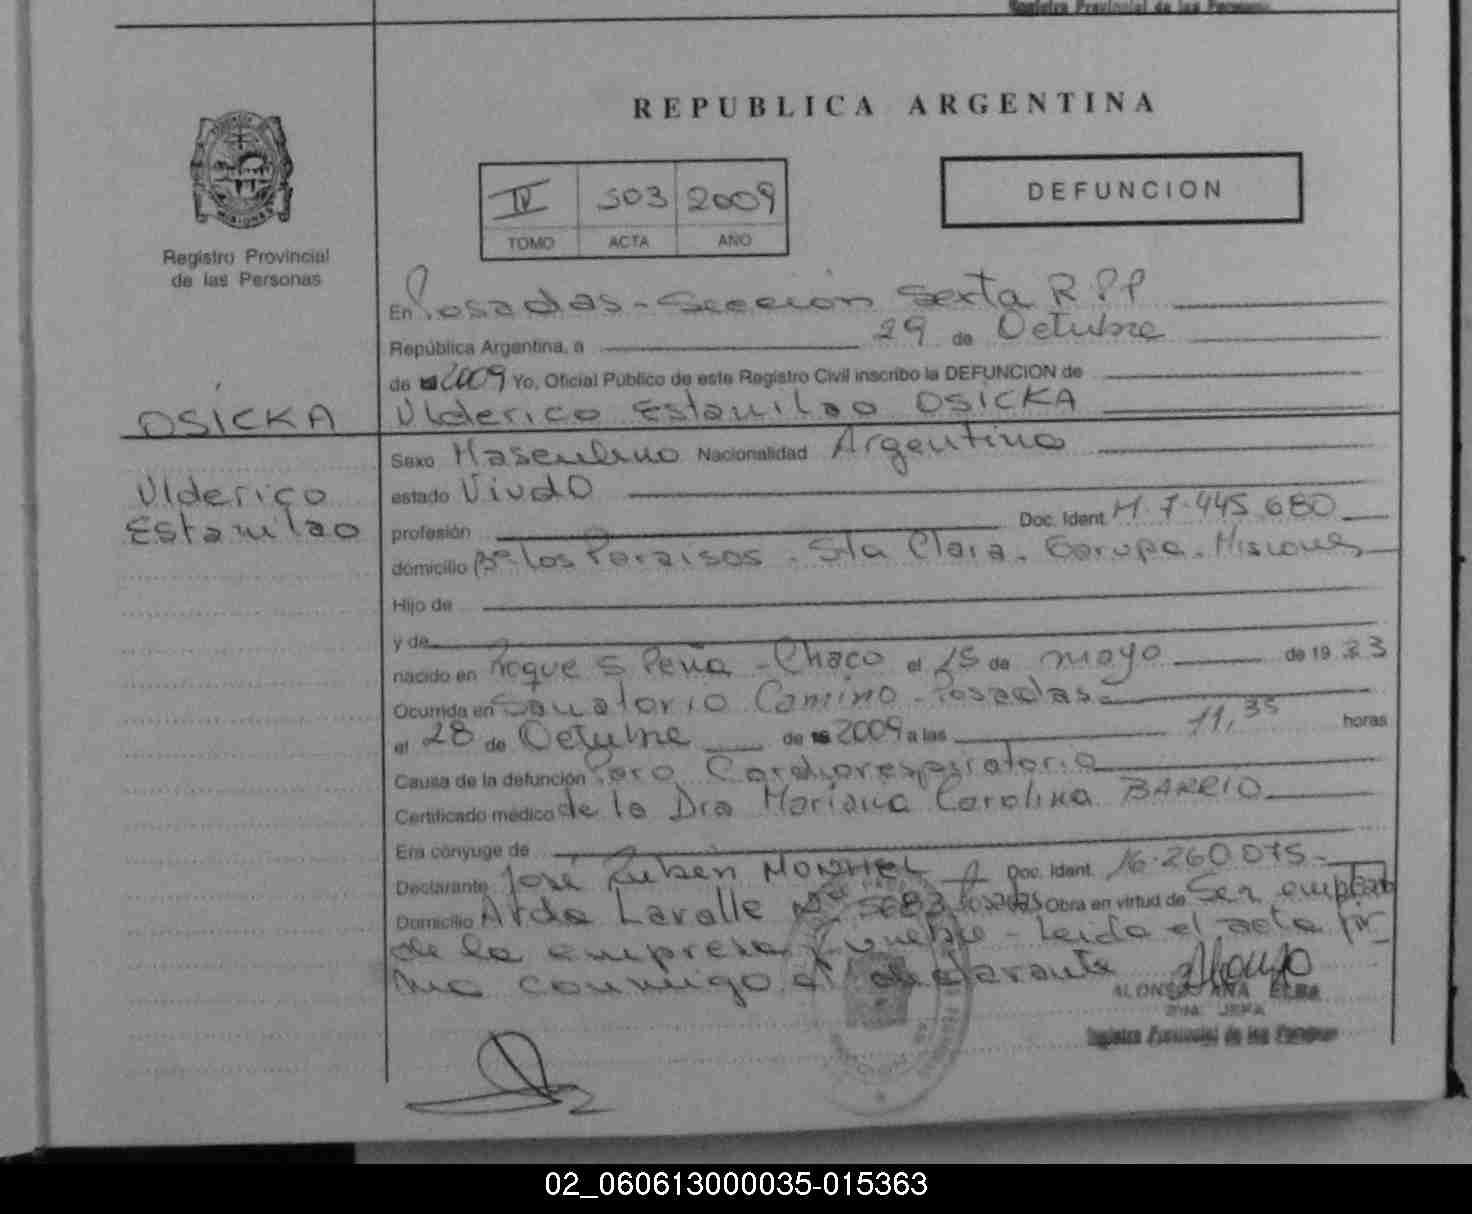 Registro Provincial de las Personas
REPUBLICA ARGENTINA
DEFUNCION
IV 503 2009
TOMO ACTA AÑO
Registro Provincial
de las Personas
En Posadas - Sección Sexta R P P
República Argentina, a 29 de Octubre
de 2009 Yo, Oficial Público de este Registro Civil inscribo la DEFUNCION de
Ulderico Estanilao OSICKA
OSICKA
Ulderico
Estanilao
Sexo Masculino Nacionalidad Argentino
estado Viudo
profesión Doc. Ident. M. 7.445.680
domicilio Bº Los Paraisos - Sta Clara - Garupa - Misiones
Hijo de
y de
nacido en Roque S Peña - Chaco el 15 de mayo de 19 33
Ocurrida en Sanatorio Camino - Posadas
el 28 de Octubre de 2009 a las 11,35 horas
Causa de la defunción Paro Cardiorespiratorio
Certificado médico de la Dra Mariana Carolina BARRIO
Era cónyuge de
Declarante José Ruben MONTIEL Doc. Ident. 16.260.075
Domicilio Avda Lavalle Nº 5683 Posadas Obra en virtud de Ser empleado
de la empresa - Leida el acta fir_
ma conmigo el declarante
ALONSO ANA ELBA
JEFA
Registro Provincial de las Personas
02_060613000035-015363